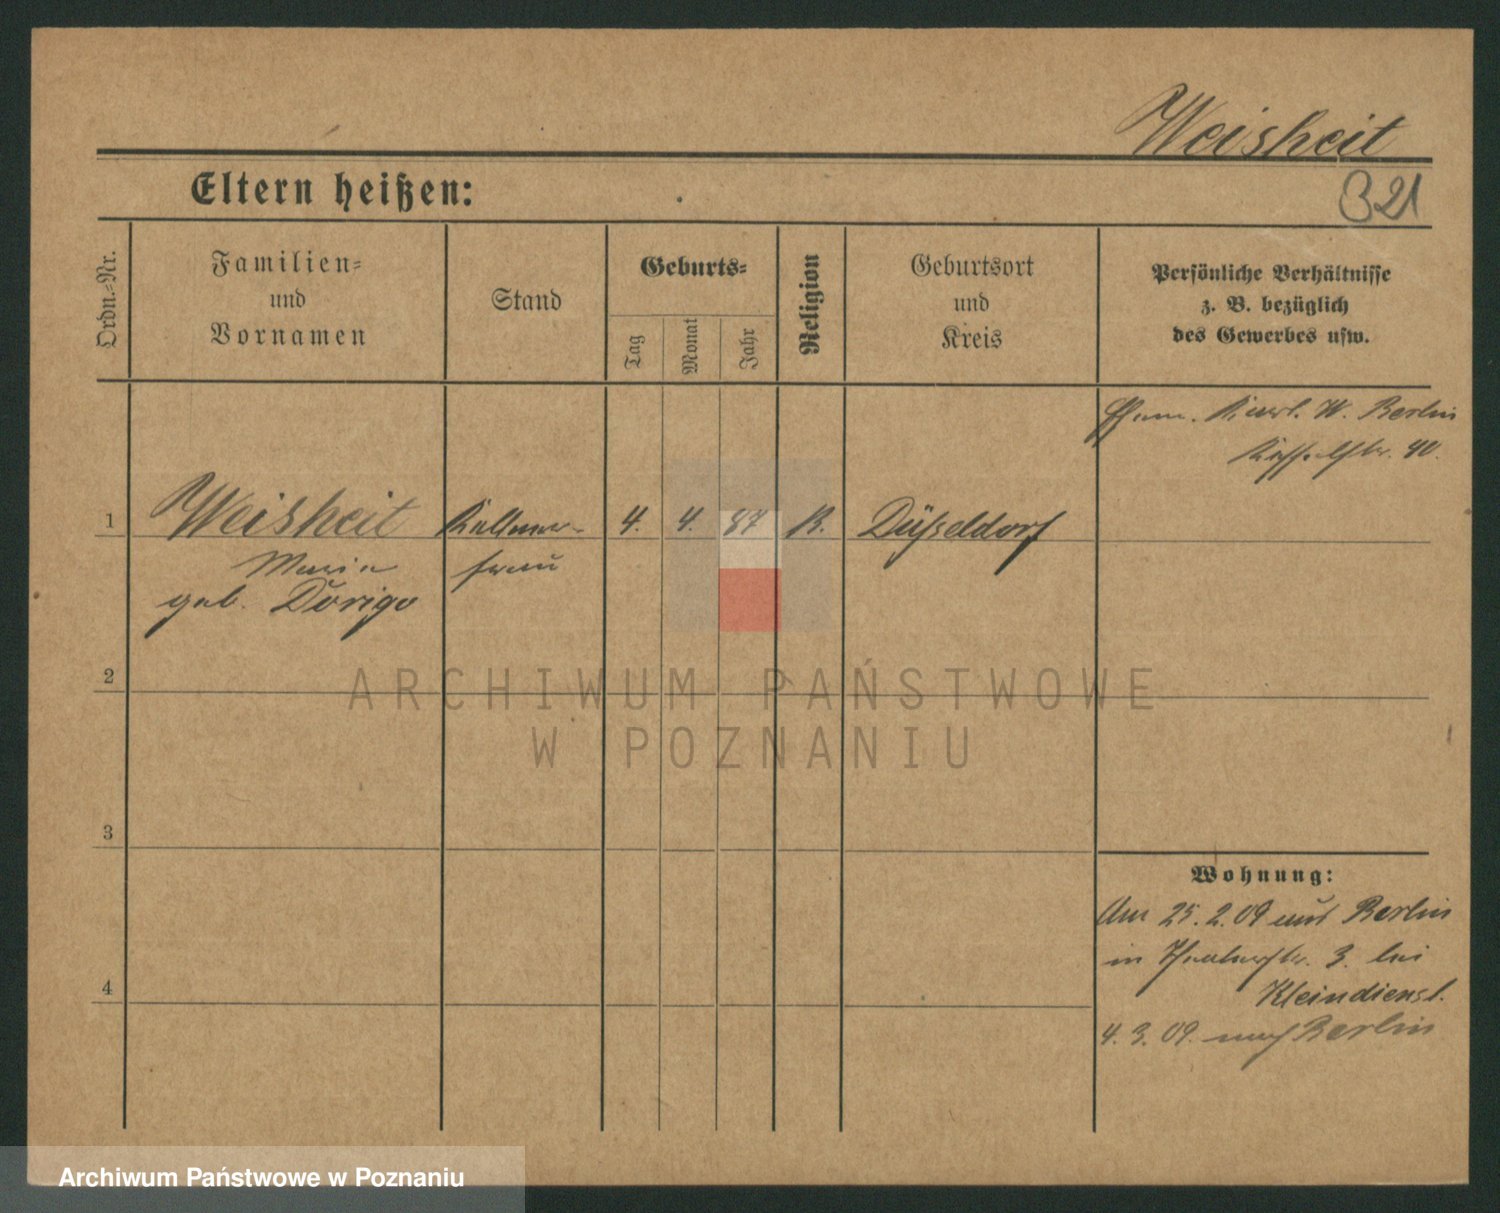 Weisheit
Eltern heißen:
321
Ordn.-Nr.
Familien-
und
Vornamen
Stand
Geburts-
Tag
Monat
Jahr
Religion
Geburtsort
und
Kreis
Persönliche Verhältnisse
z. B. bezüglich
des Gewerbes usw.
W. Berlin
40.
1
Weisheit
Kellner-
4.
4.
87
K.
Düsseldorf
Maria
frau
geb. Dorigo
2
ARCHIWUM PAŃSTWOWE
W POZNANIU
3
Wohnung:
Am 25.2.09 aus Berlin
in 3. bei
Kleindienst.
4
4.3.09. nach Berlin
Archiwum Państwowe w Poznaniu